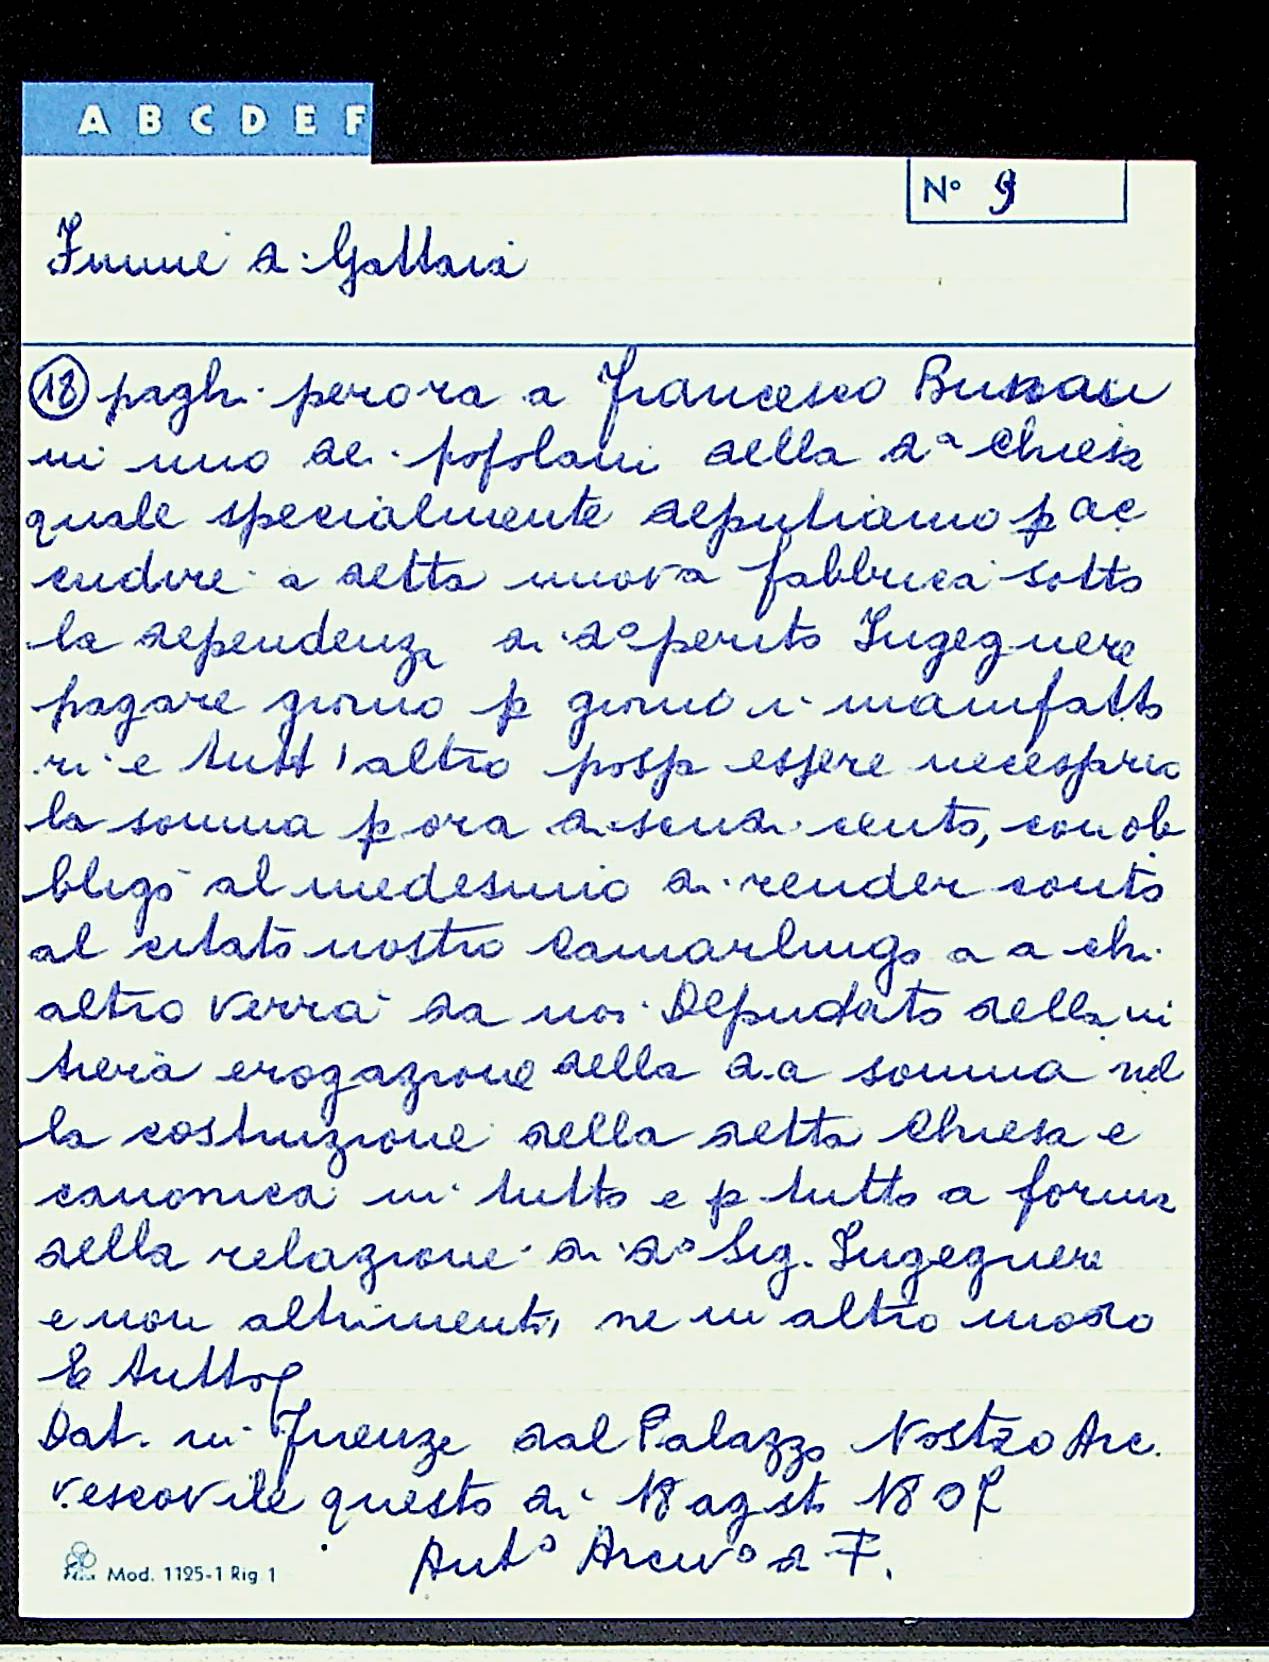 A B C D E F
N° 9
Fiume di Gattaia
(18) paghi per ora a Francesco
ni uno dei popolani della d.a Chiesa
quale specialmente deputiamo p ac
cudire a detta nuova fabbrica sotto
la dependenza di d.o perito Ingegnere
pagare giorno p giorno i manifatto
ri e tutt'altro possa essere necessario
la somma p ora di scudi cento, con ob
bligo al medesimo di render conto
al citato nostro Camarlingo a a chi
altro verrà da noi Deputato della in
tiera erogazione della d.a somma nel
la costruzione della detta Chiesa e
canonica in tutto e p tutto a forma
della relazione di d.o Sig. Ingegnere
e non altrimenti, ne in altro modo
Dat. in Firenze dal Palazzo Nostro Arc.
vescovile questo di 18 agsto
Ant.o Arciv.o di F.
Mod. 1125-1 Rig 1